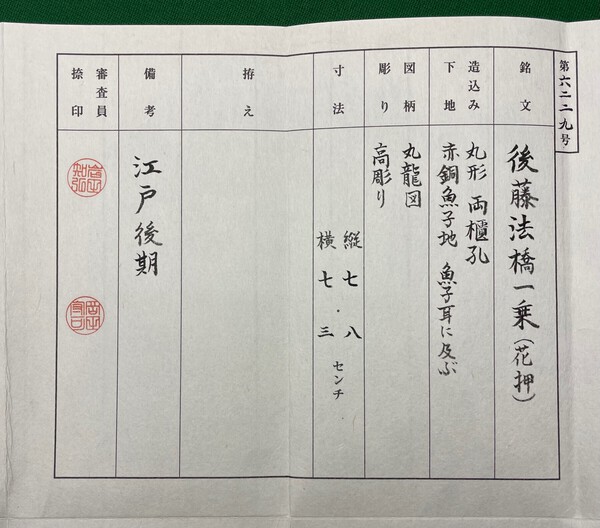 第六二二九号
銘文
後藤法橋一乗(花押)
造込み
下地
丸形 両櫃孔
赤銅魚子地 魚子耳に及ぶ
図柄
彫り
丸龍図
高彫り
寸法
縦七・八
横七・三
センチ
拵え
備考
江戸後期
審査員
捺印